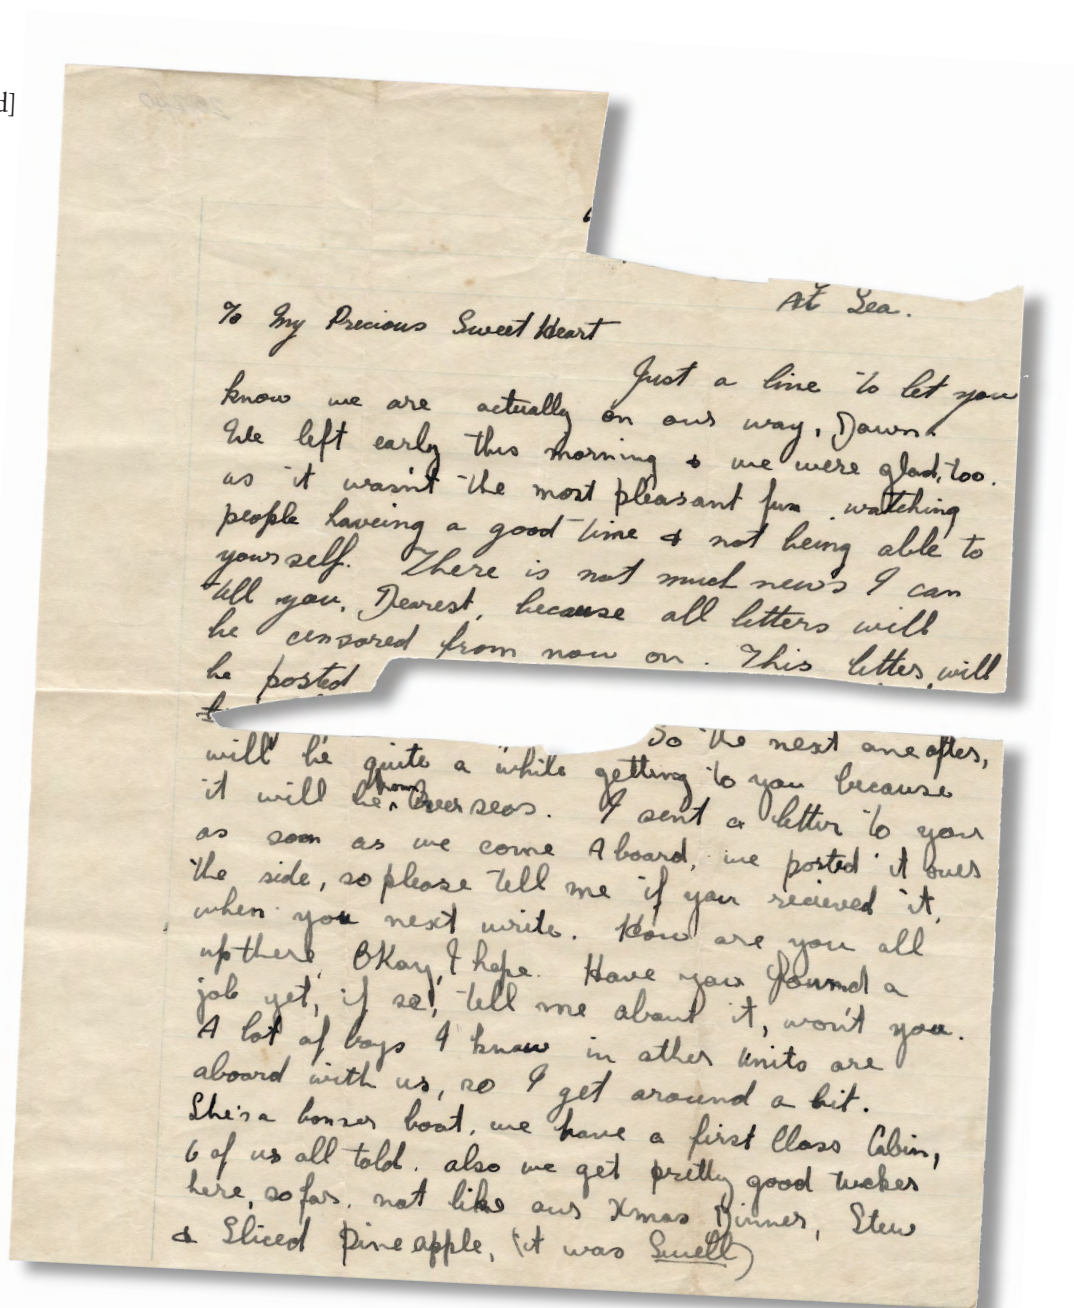 d]
At Sea.
To My Precious Sweet Heart
Just a line to let you
know we are actually on our way, Dawn.
We left early this morning & we were glad, too.
as it wasn't the most pleasant fun watching
people haveing a good time & not being able to
yourself. There is not much news I can
tell you, Dearest, because all letters will
be censored from now on. This letter, will
be posted
So the next one after,
will be quite a while getting to you because
it will be from Overseas. I sent a letter to your
as soon as we come Aboard, we posted it over
the side, so please tell me if you recieved it,
when you next write. How are you all
up there, OKay, I hope. Have you found a
job yet, if so, tell me about it, won't you.
A lot of boys I know in other units are
aboard with us, so I get around a bit.
She's a bonser boat, we have a first Class Cabin,
6 of us all told. also we get pretty good tucker
here, so far. not like our Xmas Dinner, Stew
& Sliced Pine apple, (it was Swell)